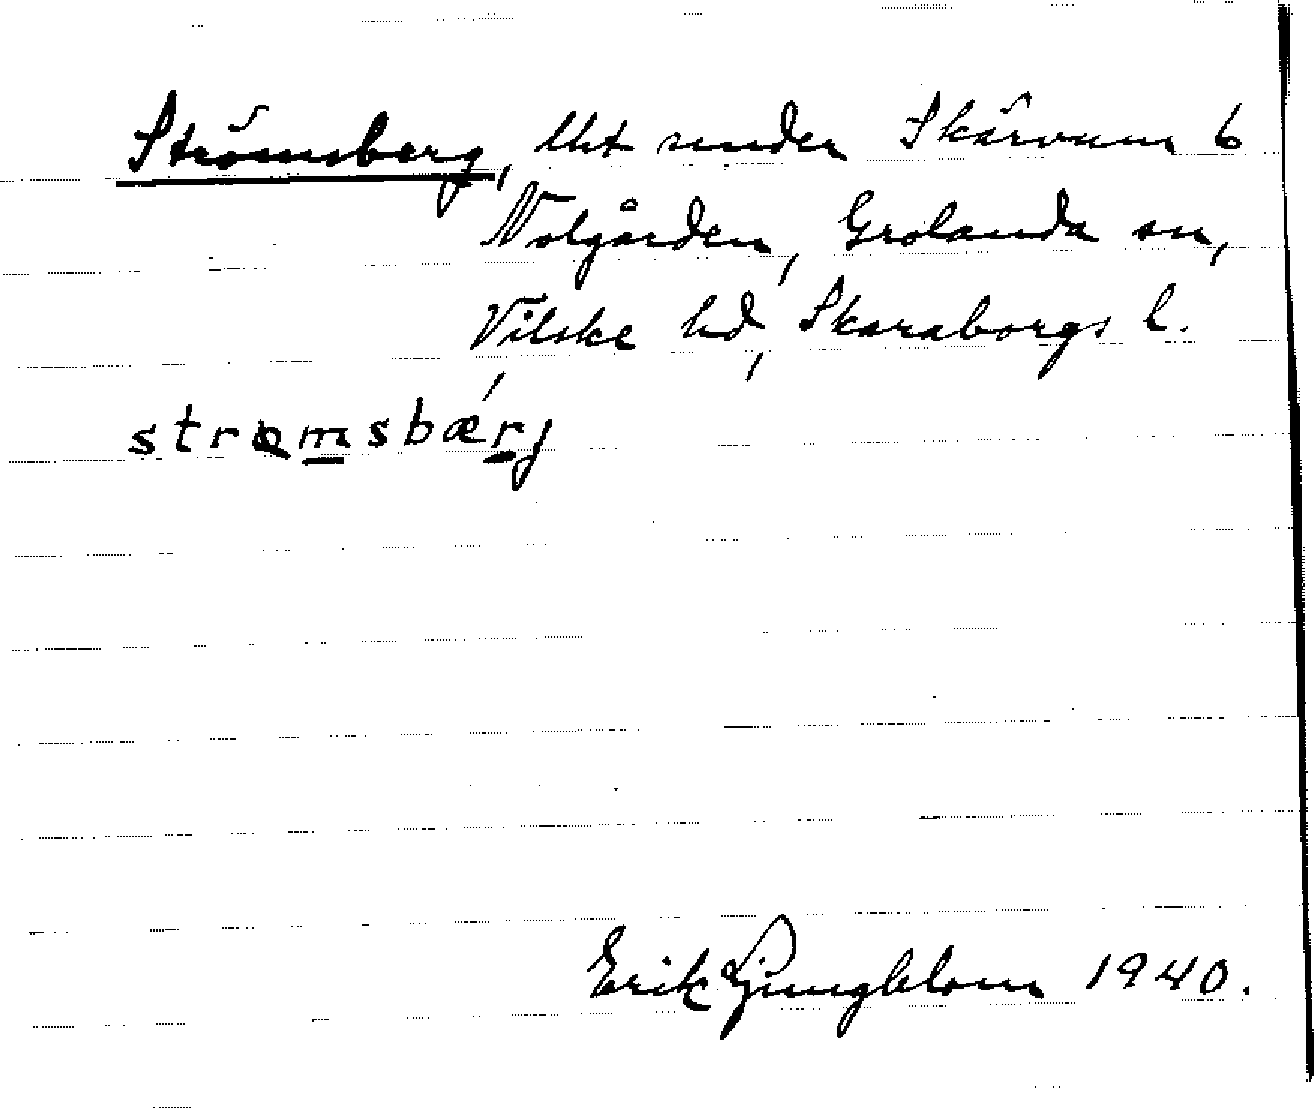 Strömsberg, lht under Skärvum 6
Nolgården, Grolanda sn,
Vilske hd, Skaraborgs l.
strømsbæ´rj
Erik Ljungblom 1940.